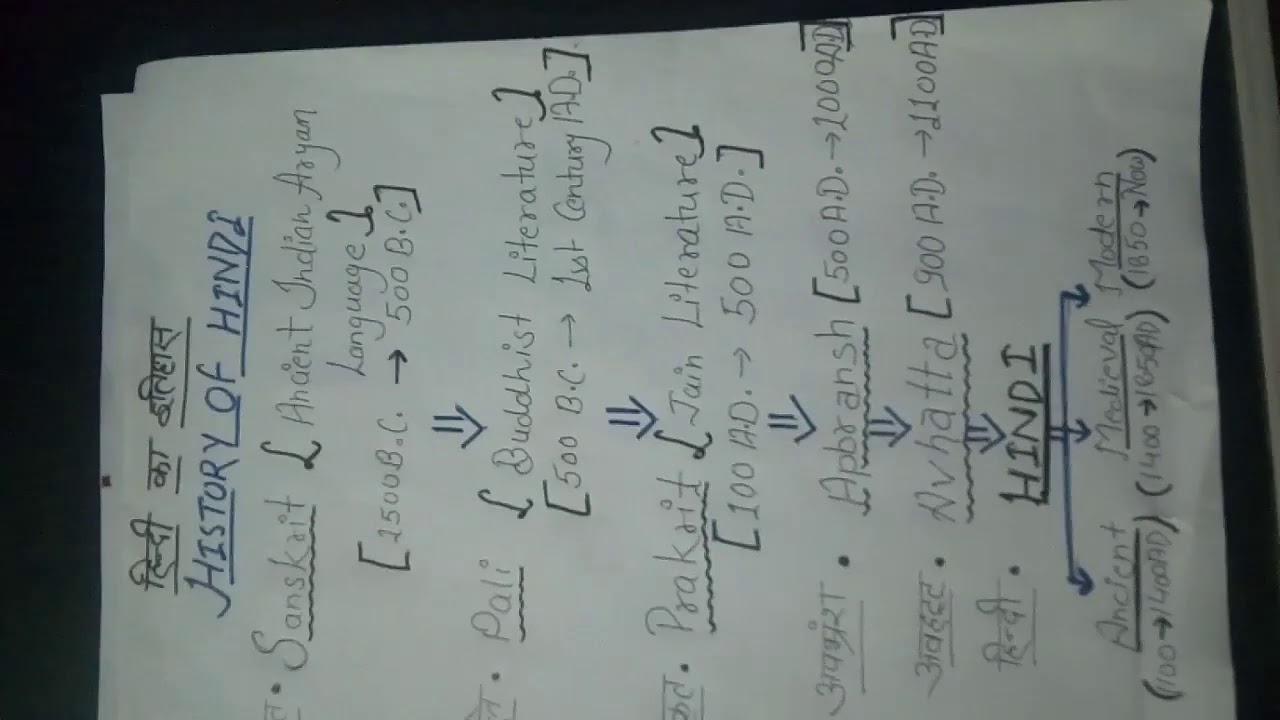 हिन्दी का इतिहास
HISTORY OF HINDI
• Sanskrit [Ancient Indian Aryan
Language]
[1500B.C. → 500 B.C.]
⇓
• Pali [Buddhist Literature]
[500 B.C. → 1st Century A.D.]
⇓
• Prakrit [Jain Literature]
[100 A.D. → 500 A.D.]
⇓
अपभ्रंश • Apbransh [500A.D. → 1000AD]
⇓
अवहट्ट • Avhatta [900 A.D. → 1100AD]
⇓
हिन्दी • HINDI
Ancient Medieval Modern
(1100→1400AD) (1400→1850AD) (1850→Now)